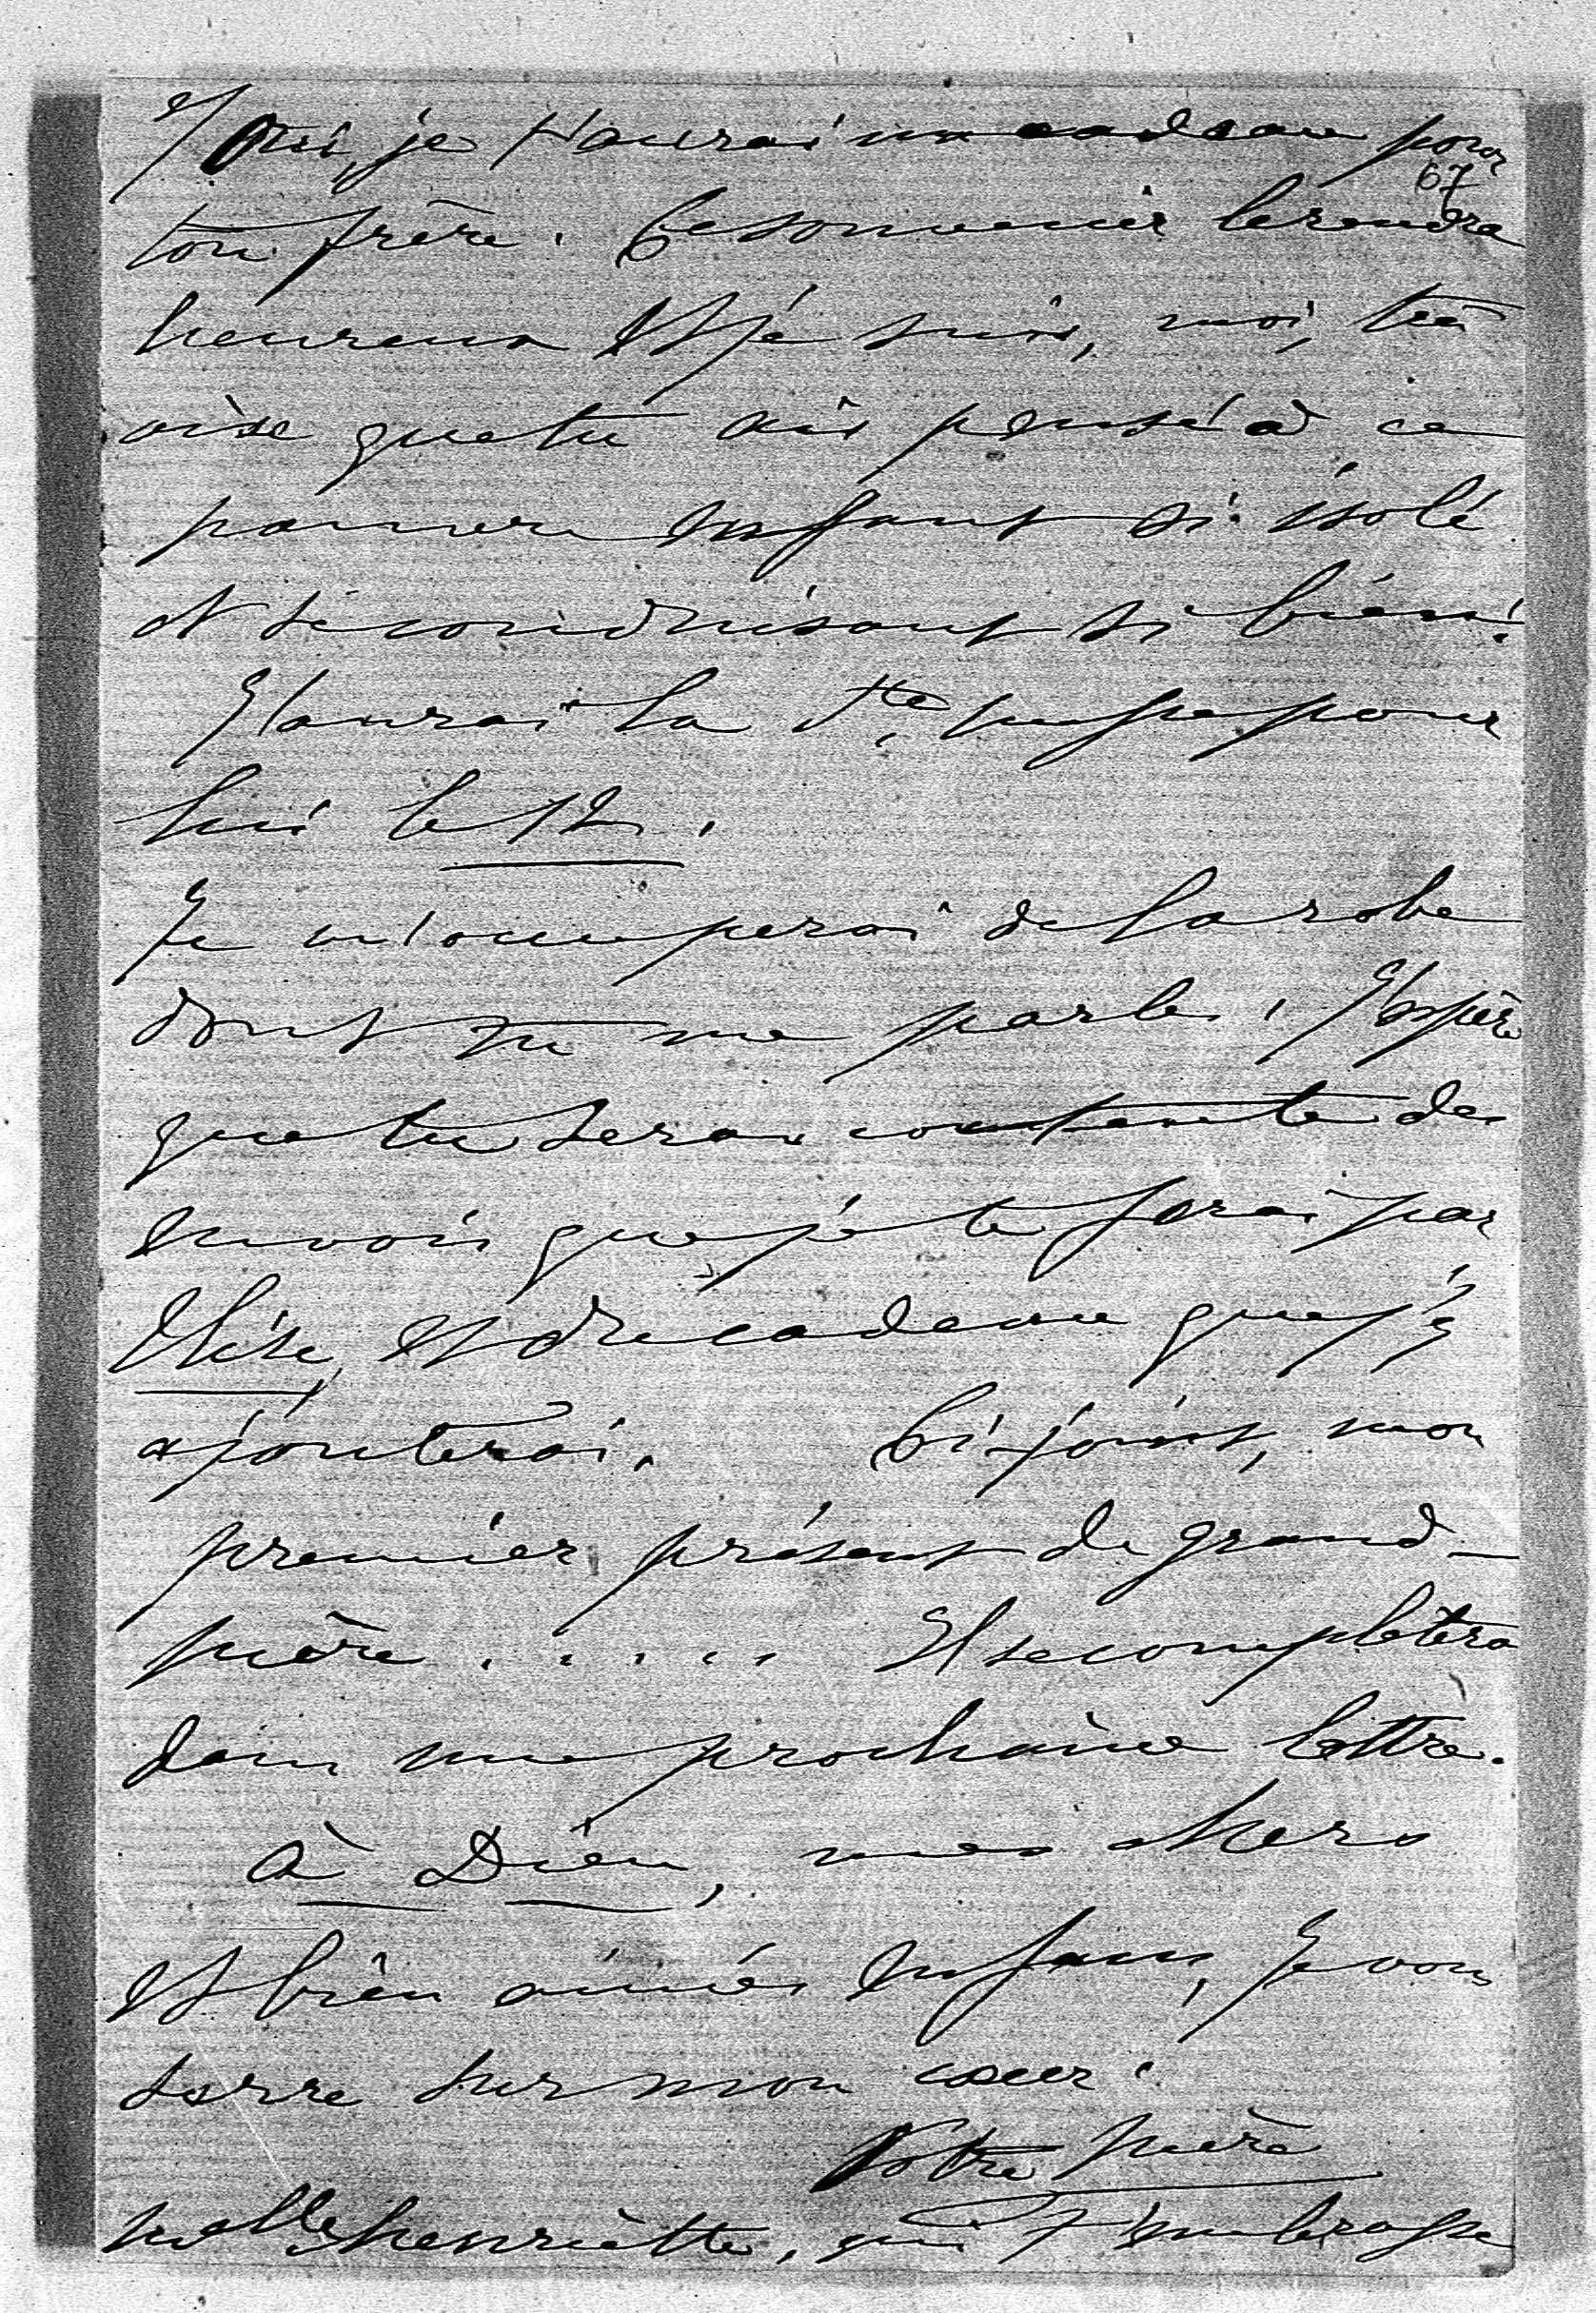 Oui, je t'aurai un cadeau pour
67
ton frère. Ce souvenir le rendra
heureux et je suis, moi, très
aise que tu ais pensé à ce
pauvre enfant si isolé
et se conduisant si bien!
J'aurai la Ste messe pour
lui le 12.
Je m'occuperai de la robe
dont tu me parles. J'espère
que tu seras contente des
envois que je te ferai par
Élise, et du cadeau que j'y
ajouterai. Ci-joint, mon
premier présent de grand-
mère ..... Il se complètera
dans une prochaine lettre.
à Dieu, mes chers
et bien aimés enfans, Je vous
serre sur mon cœur.
Votre mère
Melle henriette, qui t'embrasse